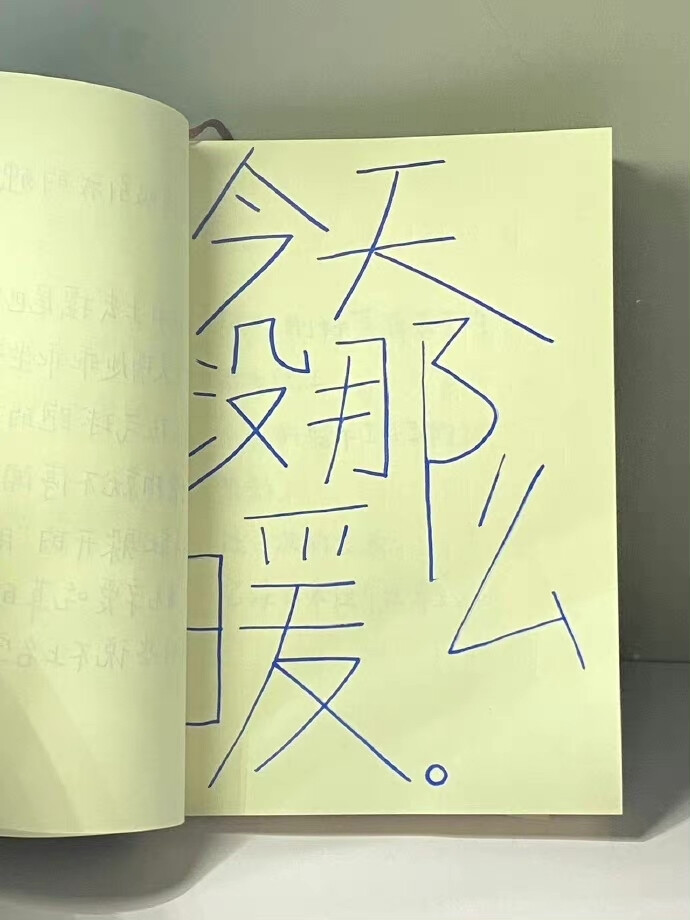 今天
没那么
暖。